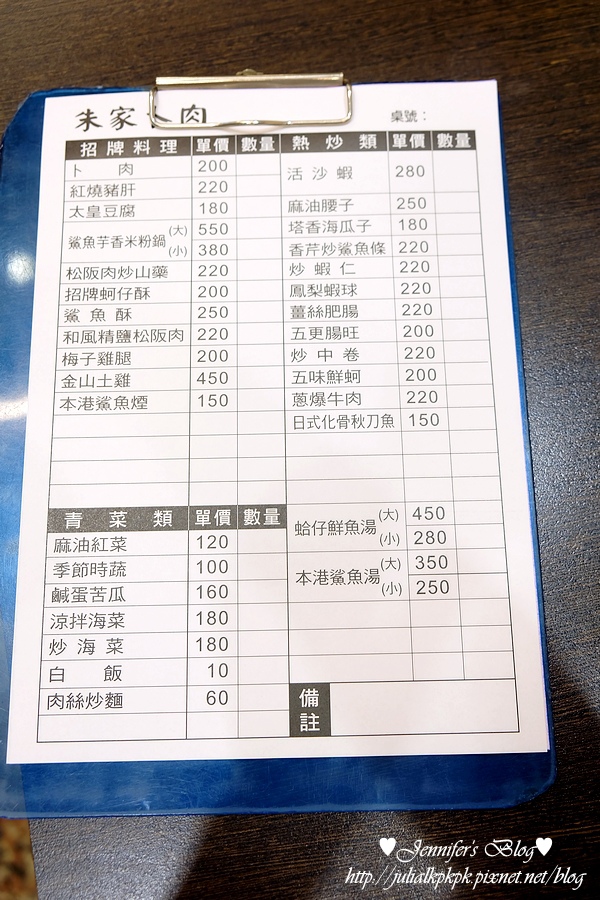 朱家卜肉
桌號：
招牌料理 單價 數量
卜肉 200
紅燒豬肝 220
太皇豆腐 180
鯊魚芋香米粉鍋 (大) 550
(小) 380
松阪肉炒山藥 220
招牌蚵仔酥 200
鯊魚酥 250
和風精鹽松阪肉 220
梅子雞腿 200
金山土雞 450
本港鯊魚煙 150
熱炒類 單價 數量
活沙蝦 280
麻油腰子 250
塔香海瓜子 180
香芹炒鯊魚條 220
炒蝦仁 220
鳳梨蝦球 220
薑絲肥腸 220
五更腸旺 200
炒中卷 220
五味鮮蚵 200
蔥爆牛肉 220
日式化骨秋刀魚 150
青菜類 單價 數量
麻油紅菜 120
季節時蔬 100
鹹蛋苦瓜 160
涼拌海菜 180
炒海菜 180
白飯 10
肉絲炒麵 60
蛤仔鮮魚湯 (大) 450
(小) 280
本港鯊魚湯 (大) 350
(小) 250
備註
♥Jennifer's Blog♥
http://julialkpkpk.pixnet.net/blog